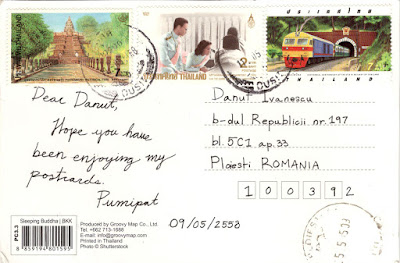 THAILAND
ประเทศไทย THAILAND
ประเทศไทย
THAILAND
Dear Danut,
Hope you have
been enjoying my
postcards.
Pumipat
Danut Ivanescu
b-dul Republicii nr.197
bl.5C1 ap.33
Ploiesti ROMANIA
100392
09/05/2553
PC5.5
Sleeping Buddha | BKK
8 859194 801595
Produced by Groovy Map Co., Ltd.
Tel. +662 713-1888
E-mail: info@groovymap.com
Printed in Thailand
Photo © Shutterstock